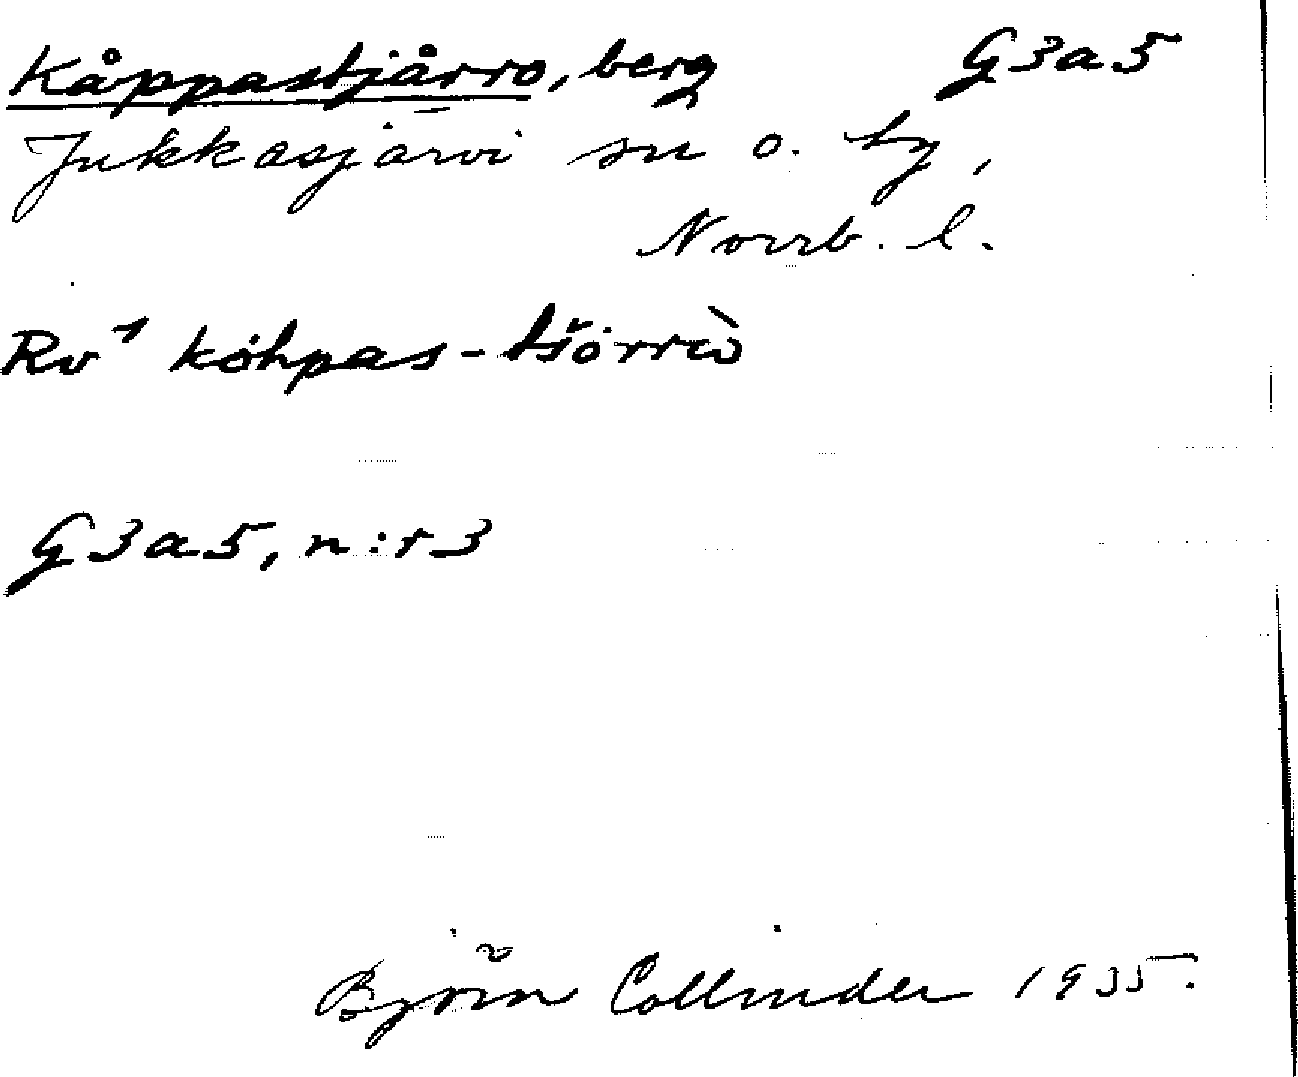 Kåppastjårro, berg G3a5
Jukkasjärvi sn o. by,
Norrb. l.
Rv¹ kòhpas-tšòrrὼ
G3a5, n:r3
Björn Collinder 1935.